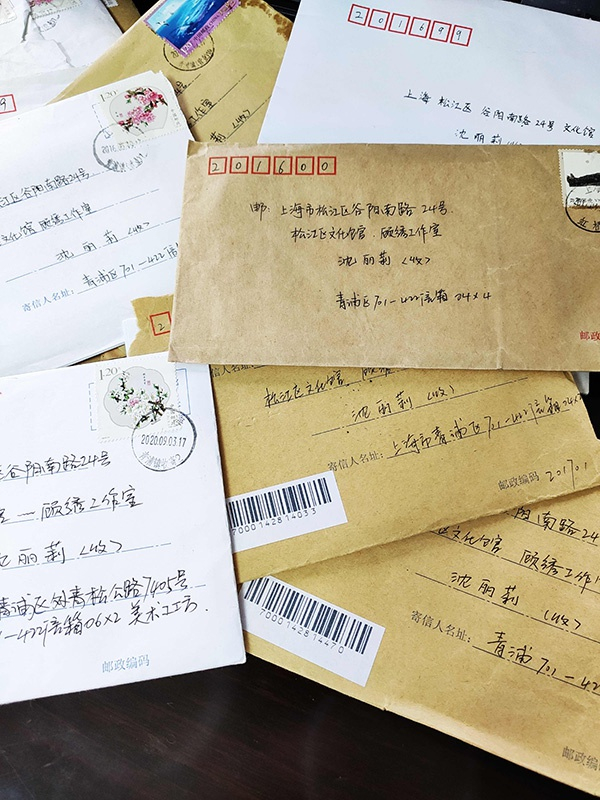 201699
上海 松江区 谷阳南路24号 文化馆
沈丽莉（收）
1.20
工作室
（收）
1.20
江区谷阳南路24号
文化馆 顾绣工作室
沈丽莉（收）
寄信人名址：青浦区701-422信
201600
邮：上海市松江区谷阳南路24号.
松江区文化馆. 顾绣工作室
沈丽莉（收）
青浦区701-422信箱24×4
邮政
松江区文化馆 顾绣
沈丽莉（收）
寄信人名址：上海市青浦区701-422信箱24
邮政编码 201701
7000142814033
1.20
2020.09.03.17
谷阳南路24号
顾绣工作室
沈丽莉（收）
青浦区外青松公路7405号
-422信箱06×2 美术工坊.
邮政编码
阳南路24
文化馆 顾绣工作
沈丽莉（收）
寄信人名址：青浦701-422
7000142814470
邮政编